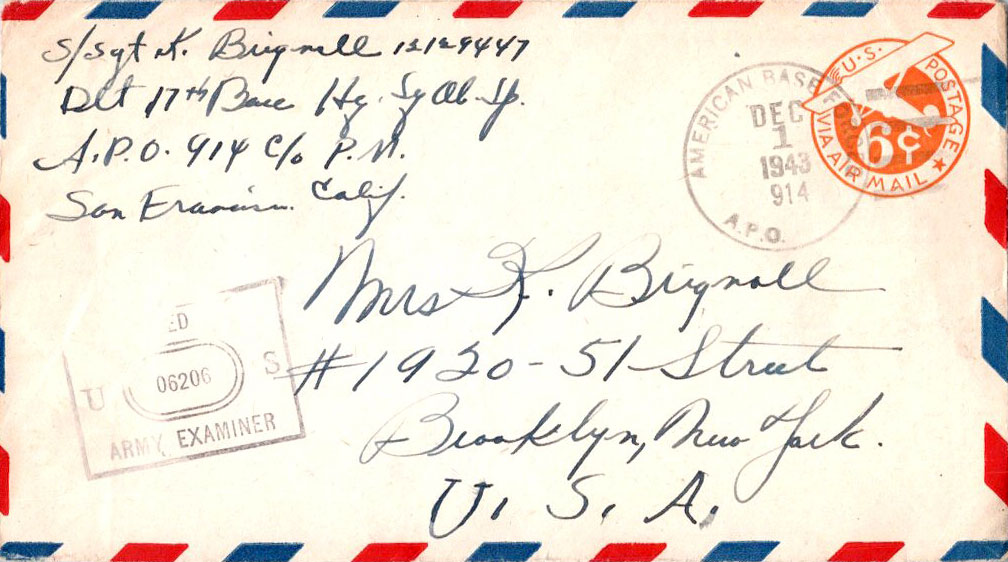 S/Sgt K. Brignall 12129447
Det 17th Base Hq.
A.P.O. 914 C/o P.M.
San Francisco. Calif.
AMERICAN BASE
DEC
1
1943
914
A.P.O.
U.S. POSTAGE
6¢
VIA AIR MAIL
Mrs K. Brignall
#1920-51 Street
Brooklyn, New York.
U. S. A.
ED
U 06206 S
ARMY EXAMINER